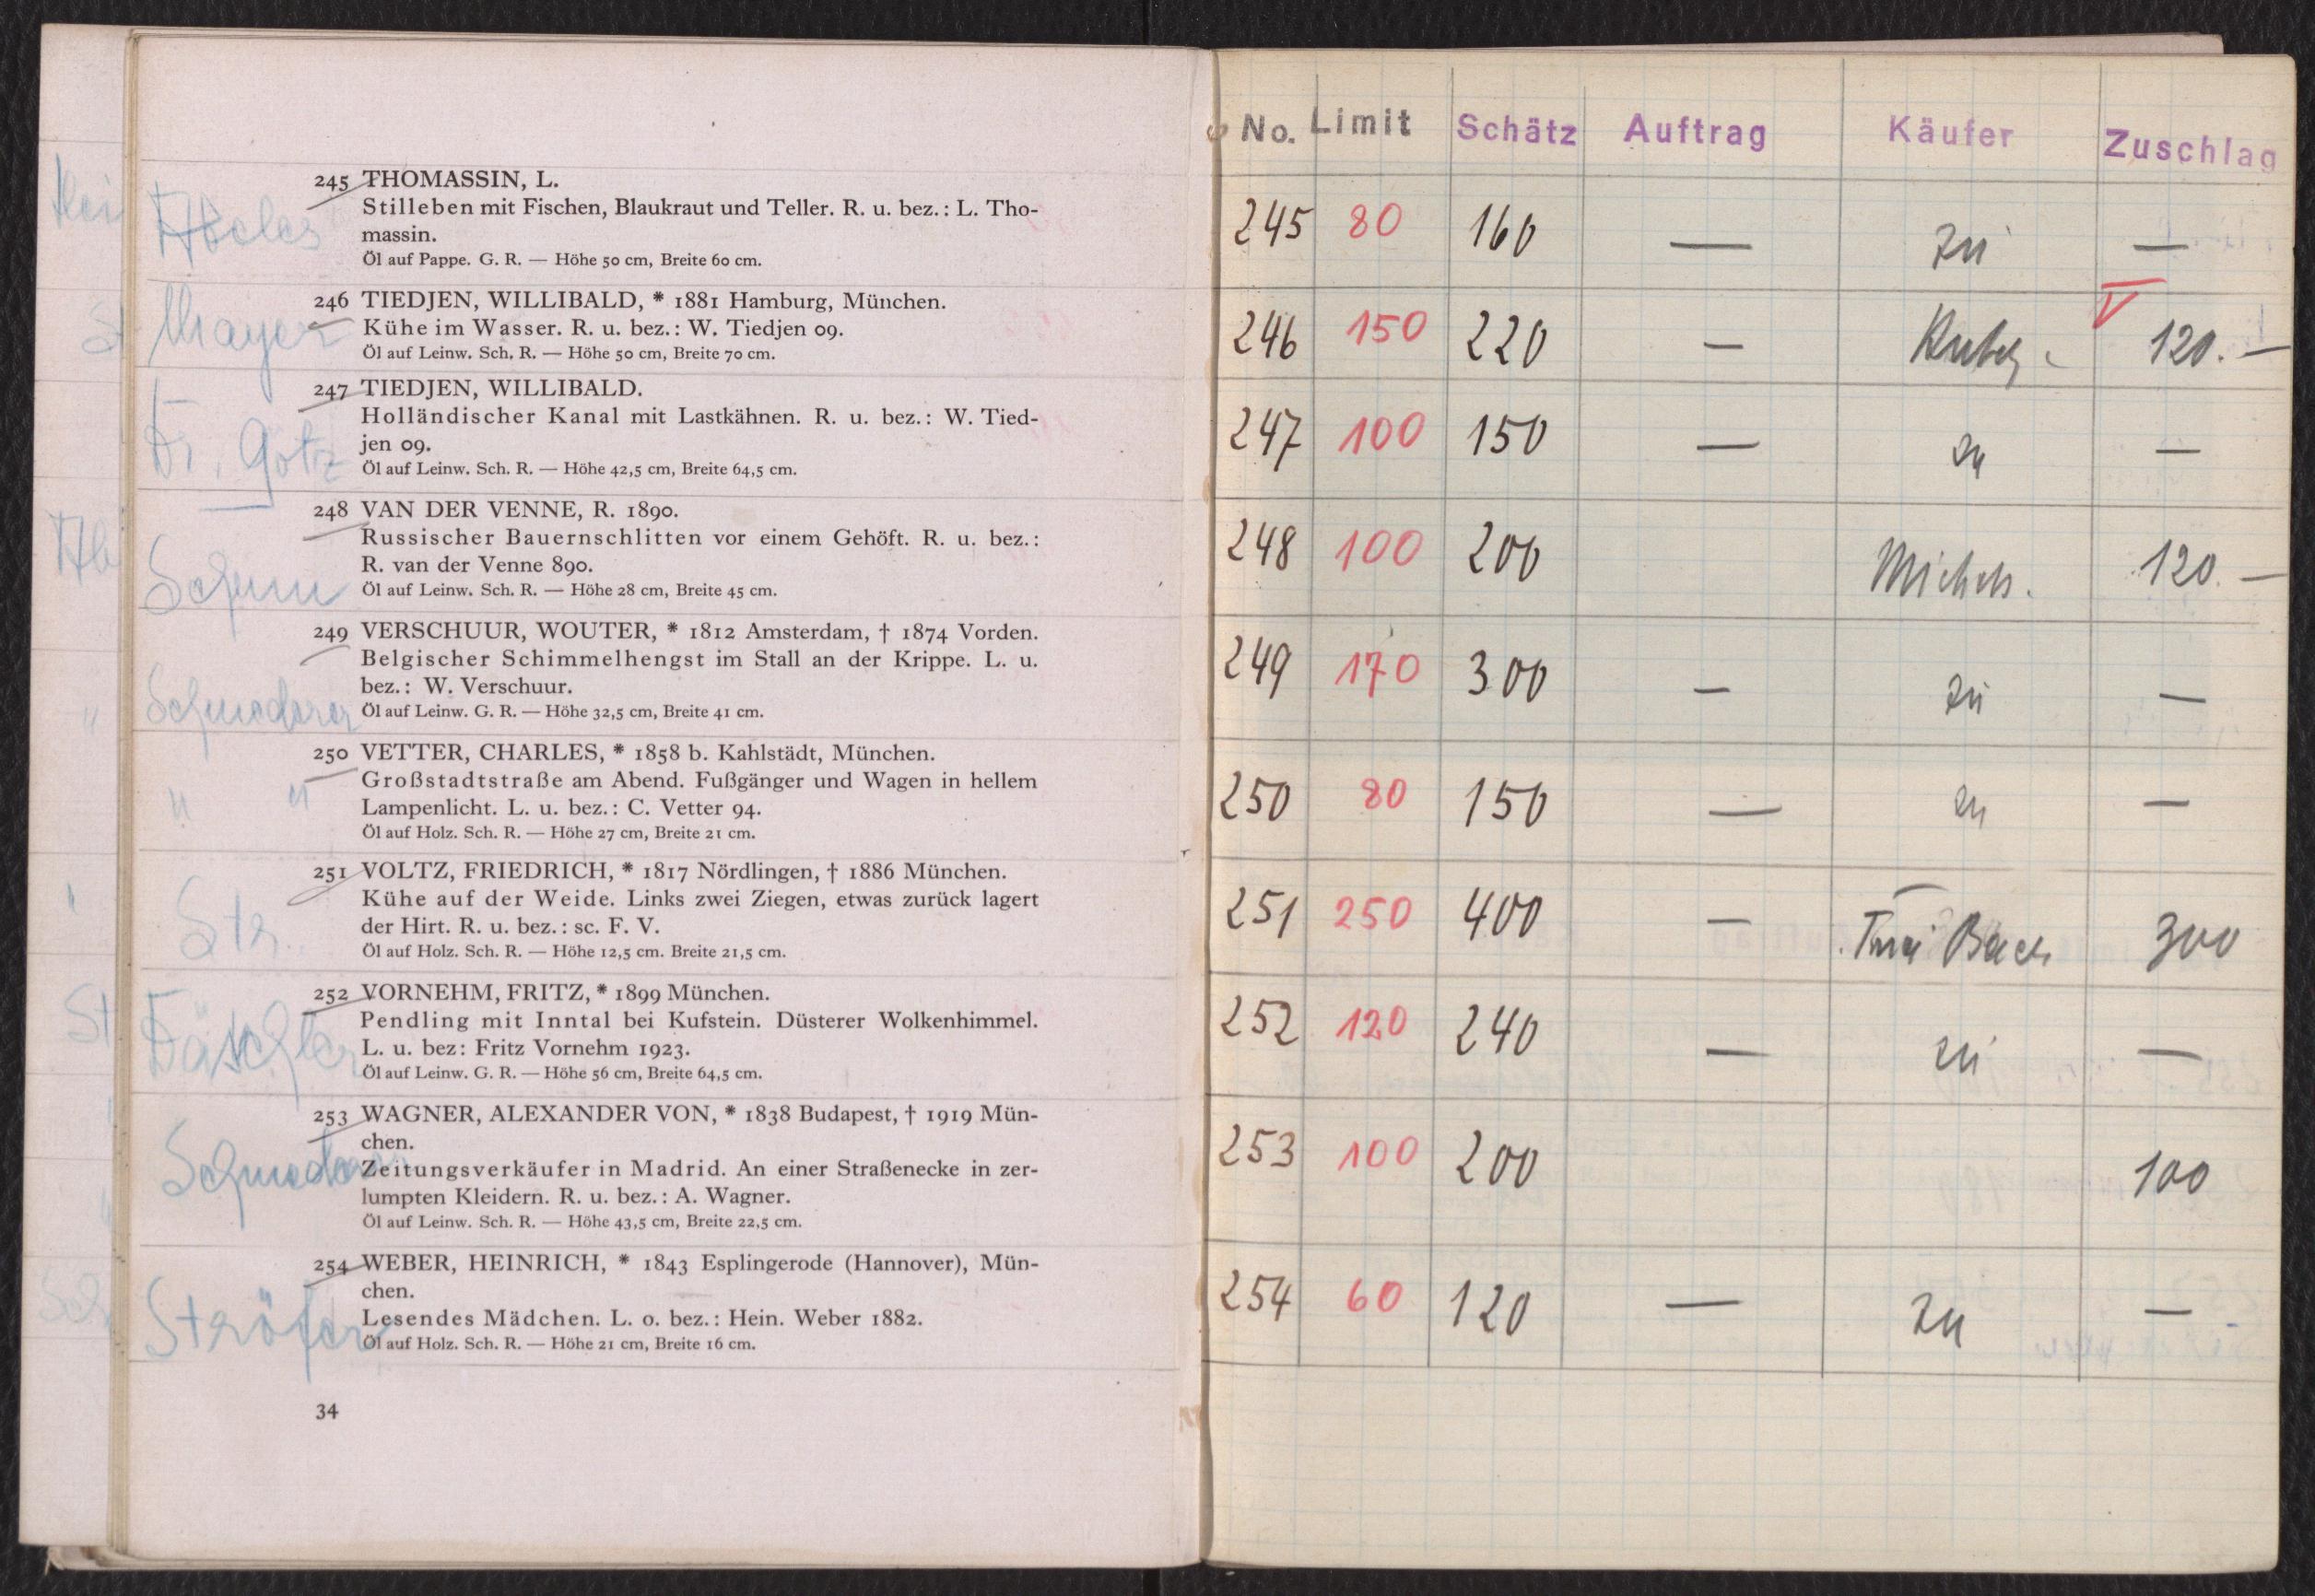 245 THOMASSIN, L.
Stilleben mit Fischen, Blaukraut und Teller. R. u. bez.: L. Tho-
massin.
Öl auf Pappe. G. R. — Höhe 50 cm, Breite 60 cm.
Mayer
246 TIEDJEN, WILLIBALD, * 1881 Hamburg, München.
Kühe im Wasser. R. u. bez.: W. Tiedjen 09.
Öl auf Leinw. Sch. R. — Höhe 50 cm, Breite 70 cm.
Dr. Götz
247 TIEDJEN, WILLIBALD.
Holländischer Kanal mit Lastkähnen. R. u. bez.: W. Tied-
jen 09.
Öl auf Leinw. Sch. R. — Höhe 42,5 cm, Breite 64,5 cm.
248 VAN DER VENNE, R. 1890.
Russischer Bauernschlitten vor einem Gehöft. R. u. bez.:
R. van der Venne 890.
Öl auf Leinw. Sch. R. — Höhe 28 cm, Breite 45 cm.
249 VERSCHUUR, WOUTER, * 1812 Amsterdam, † 1874 Vorden.
Belgischer Schimmelhengst im Stall an der Krippe. L. u.
bez.: W. Verschuur.
Öl auf Leinw. G. R. — Höhe 32,5 cm, Breite 41 cm.
Schmederer
250 VETTER, CHARLES, * 1858 b. Kahlstädt, München.
Großstadtstraße am Abend. Fußgänger und Wagen in hellem
Lampenlicht. L. u. bez.: C. Vetter 94.
Öl auf Holz. Sch. R. — Höhe 27 cm, Breite 21 cm.
" "
251 VOLTZ, FRIEDRICH, * 1817 Nördlingen, † 1886 München.
Kühe auf der Weide. Links zwei Ziegen, etwas zurück lagert
der Hirt. R. u. bez.: sc. F. V.
Öl auf Holz. Sch. R. — Höhe 12,5 cm. Breite 21,5 cm.
Str.
252 VORNEHM, FRITZ, * 1899 München.
Pendling mit Inntal bei Kufstein. Düsterer Wolkenhimmel.
L. u. bez: Fritz Vornehm 1923.
Öl auf Leinw. G. R. — Höhe 56 cm, Breite 64,5 cm.
253 WAGNER, ALEXANDER VON, * 1838 Budapest, † 1919 Mün-
chen.
Zeitungsverkäufer in Madrid. An einer Straßenecke in zer-
lumpten Kleidern. R. u. bez.: A. Wagner.
Öl auf Leinw. Sch. R. — Höhe 43,5 cm, Breite 22,5 cm.
254 WEBER, HEINRICH, * 1843 Esplingerode (Hannover), Mün-
chen.
Lesendes Mädchen. L. o. bez.: Hein. Weber 1882.
Öl auf Holz. Sch. R. — Höhe 21 cm, Breite 16 cm.
Ströfer
34
No. Limit Schätz Auftrag Käufer Zuschlag
245 80 160 — zu —
246 150 220 — 120.—
247 100 150 — zu —
248 100 200 Michels. 120.—
249 170 300 — zu —
250 80 150 — zu —
251 250 400 — Bach 300
252 120 240 — zu —
253 100 200 100
254 60 120 — zu —